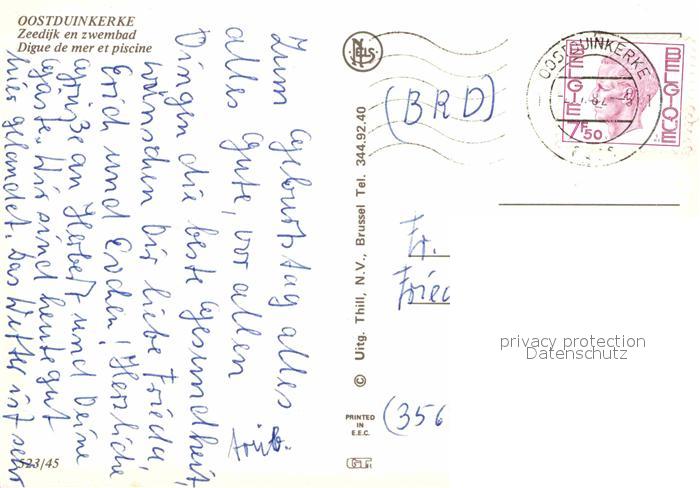 OOSTDUINKERKE
Zeedijk en zwembad
Digue de mer et piscine
Zum Geburtstag alles
alles Gute, vor allen
Dingen die beste Gesundheit,
wünschen Dir liebe Frieda,
Erich und Evchen! Herzliche
Grüße an Herbert und Deine
Gäste. Wir sind heute gut
hier gelandet. Das Wetter ist sehr
trüb.
523/45
NELS
© Uitg. Thill, N.V., Brussel Tel. 344.92.40
PRINTED
IN
E.E.C.
(BRD)
OOSTDUINKERKE
BELGIE
BELGIQUE
7F50
Fr.
Fried
(356
privacy protection
Datenschutz